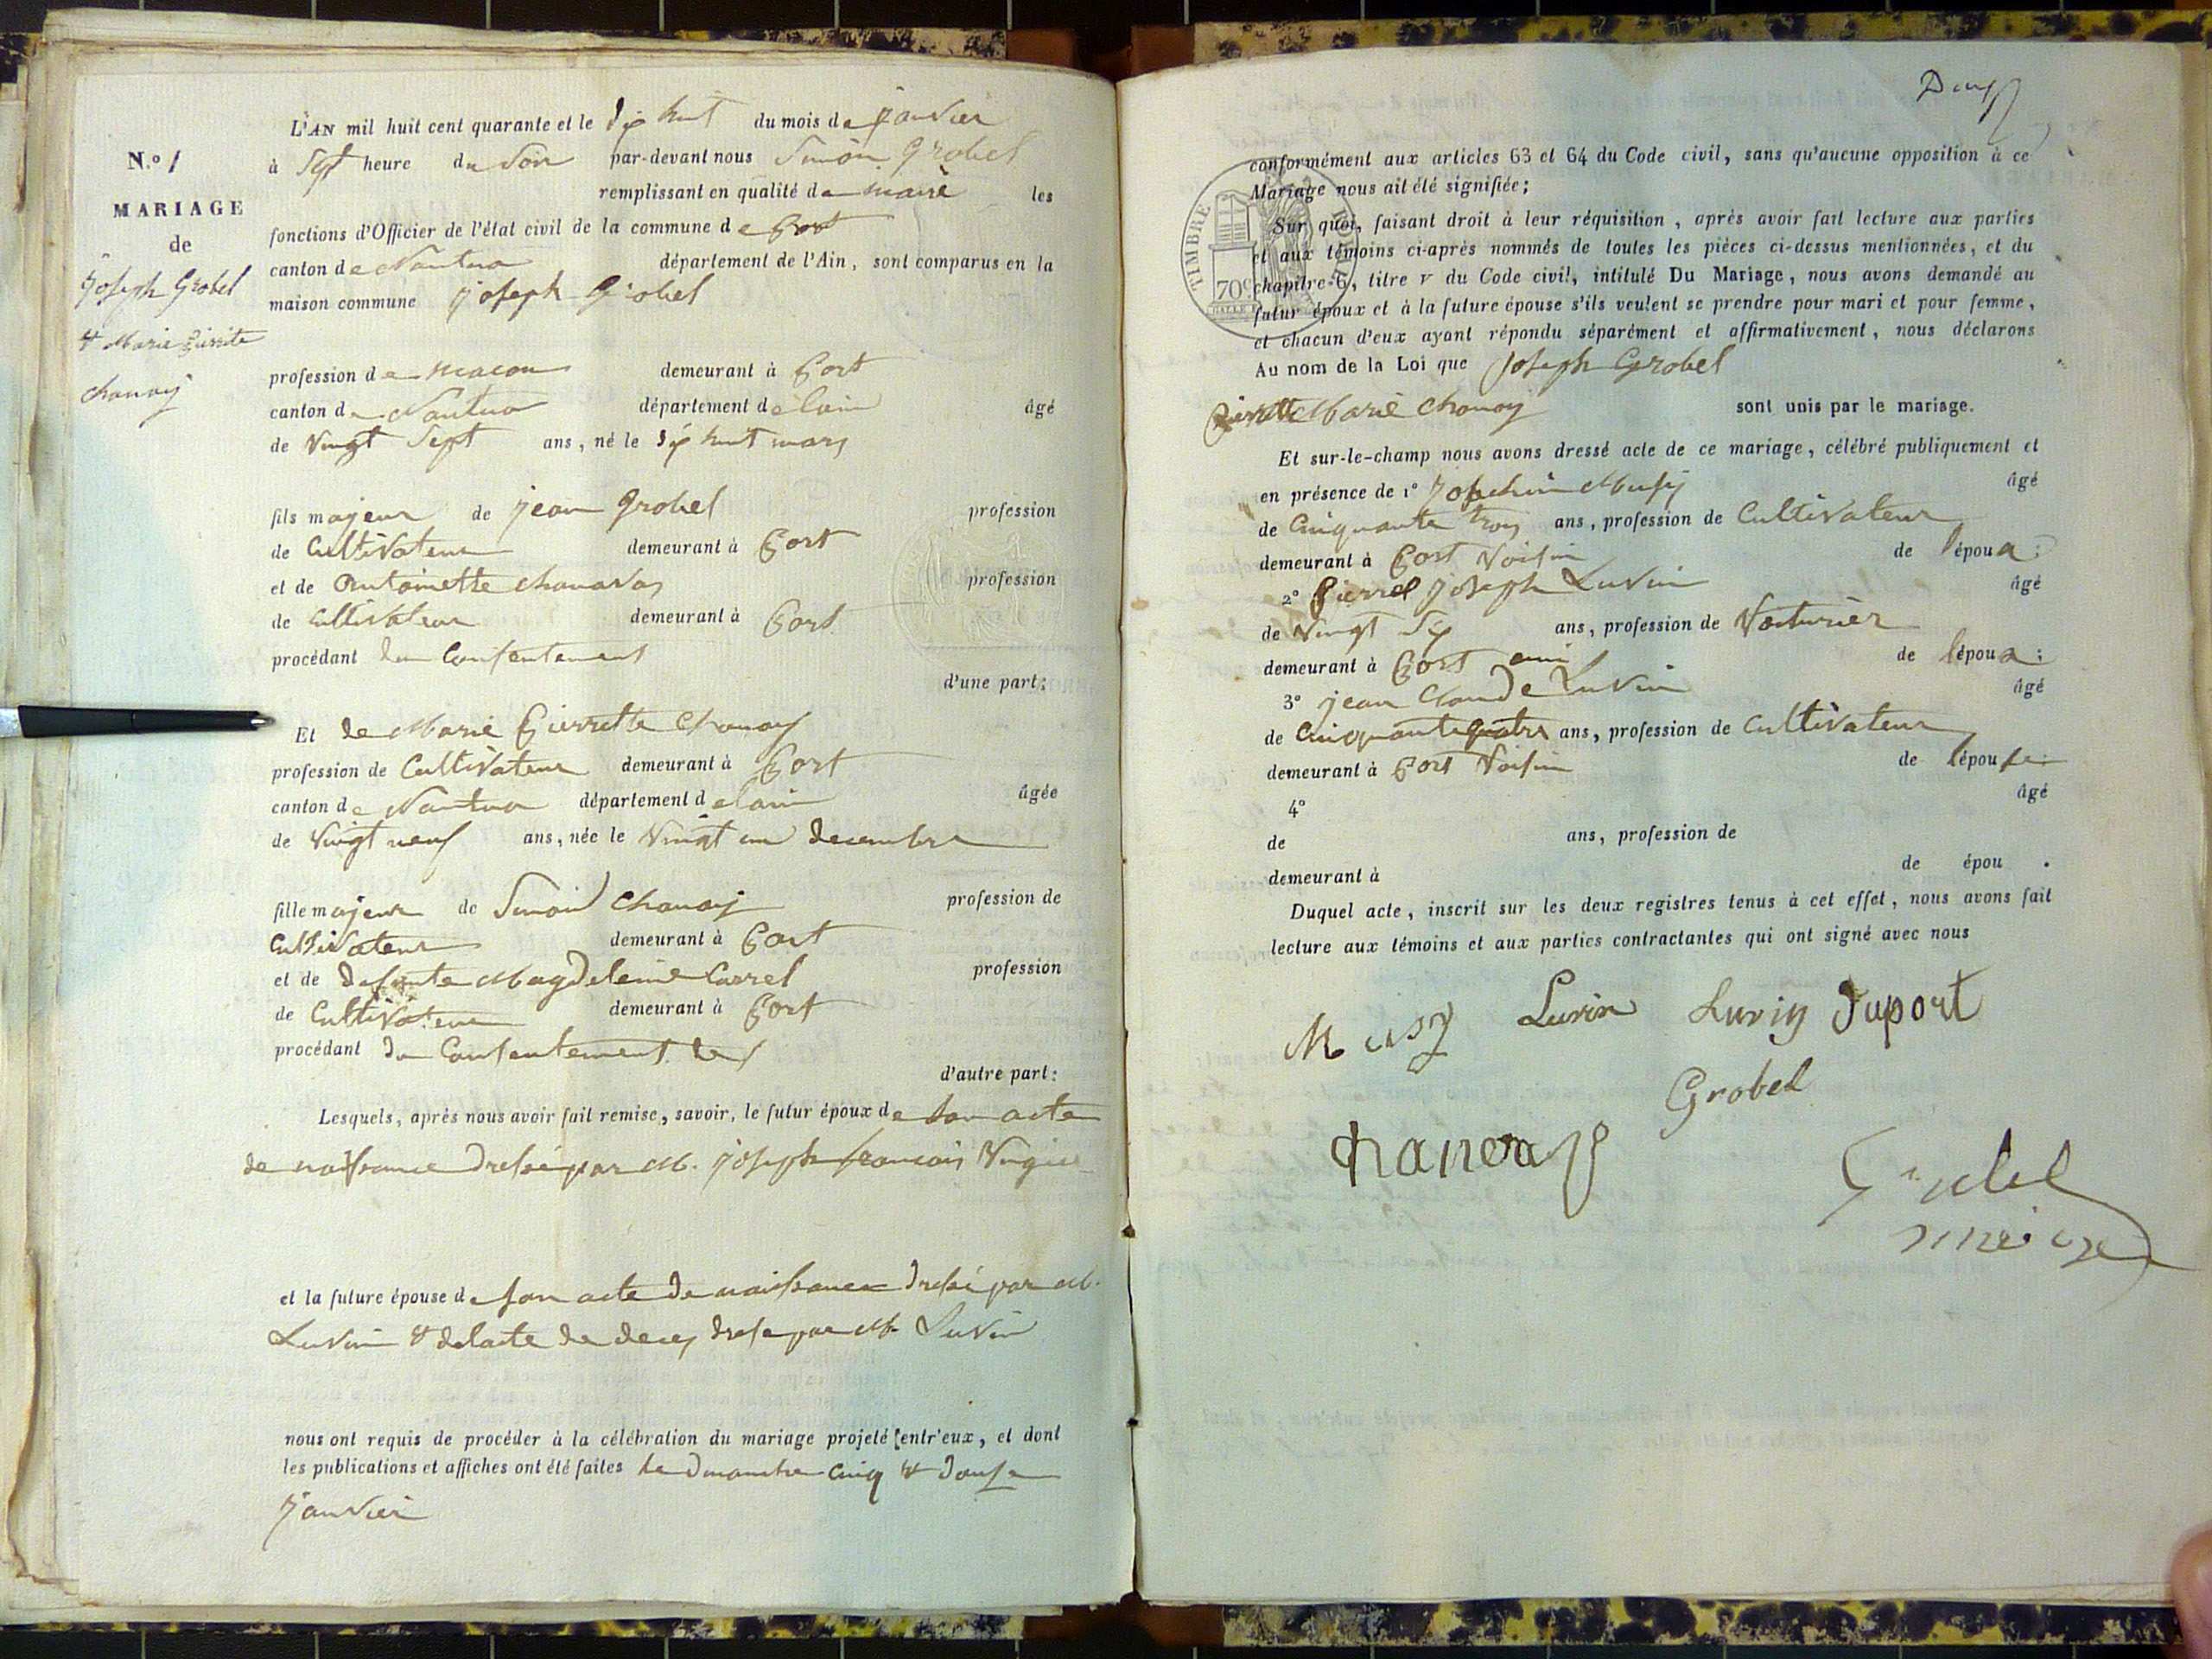 L'AN mil huit cent quarante et le dix huit du mois de janvier
à Sept heure du Soir par-devant nous Simon Grobel
remplissant en qualité de maire les
fonctions d'Officier de l'état civil de la commune de Port
canton de Nantua département de l'Ain, sont comparus en la
maison commune joseph Grobel
profession de macon demeurant à Port
canton de Nantua département de lain âgé
de vingt Sept ans, né le dix huit mars
fils majeur de jean Grobel profession
de Cultivateur demeurant à Port
et de Antoinette profession
de Cultivateur demeurant à Port
procédant du Consentement
d'une part;
Et de Marie Pierrette Chanay
profession de Cultivateur demeurant à Port
canton de Nantua département de lain âgée
de vingt neuf ans, née le vingt un decembre
fille majeur de Simon Chanay profession de
Cultivateur demeurant à Port
et de defunte Magdeleine Carrel profession
de Cultivateur demeurant à Port
procédant du Consentement
d'autre part:
Lesquels, après nous avoir fait remise, savoir, le futur époux de Son acte
de naissance dressé par M. joseph francois
et la future épouse de son acte de naissance dressé par M.
Luvin & delacte de deces dresse par M. Luvin
nous ont requis de procéder à la célébration du mariage projeté entr'eux, et dont
les publications et affiches ont été faites le dmanche cinq & douse
janvier
N.° 1
MARIAGE
de
Joseph Grobel
& Marie Pierrette
chanay
conformément aux articles 63 et 64 du Code civil, sans qu'aucune opposition à ce
Mariage nous ait été signifiée;
Sur quoi, faisant droit à leur réquisition, après avoir fait lecture aux parties
et aux témoins ci-après nommés de toutes les pièces ci-dessus mentionnées, et du
chapitre 6, titre v du Code civil, intitulé Du Mariage, nous avons demandé au
futur époux et à la future épouse s'ils veulent se prendre pour mari et pour femme,
et chacun d'eux ayant répondu séparément et affirmativement, nous déclarons
Au nom de la Loi que Joseph Grobel
Pierrette Marie Chanay sont unis par le mariage.
Et sur-le-champ nous avons dressé acte de ce mariage, célébré publiquement et
en présence de 1° Joachim Musy âgé
de Cinquante trois ans, profession de Cultivateur
demeurant à Port Voisin de lépoux;
2° Pierre Joseph Luvin âgé
de vingt Six ans, profession de Voiturier
demeurant à Port ami de lépoux;
3° jean Claude Luvin âgé
de Cinquante quatre ans, profession de Cultivateur
demeurant à Port Voisin de lépouse
4° âgé
de ans, profession de
demeurant à de épou .
Duquel acte, inscrit sur les deux registres tenus à cet effet, nous avons fait
lecture aux témoins et aux parties contractantes qui ont signé avec nous
Musy Luvin Luvin Duport
Grobel
Chanay
Grobel
maire
TIMBRE ROYAL
70c